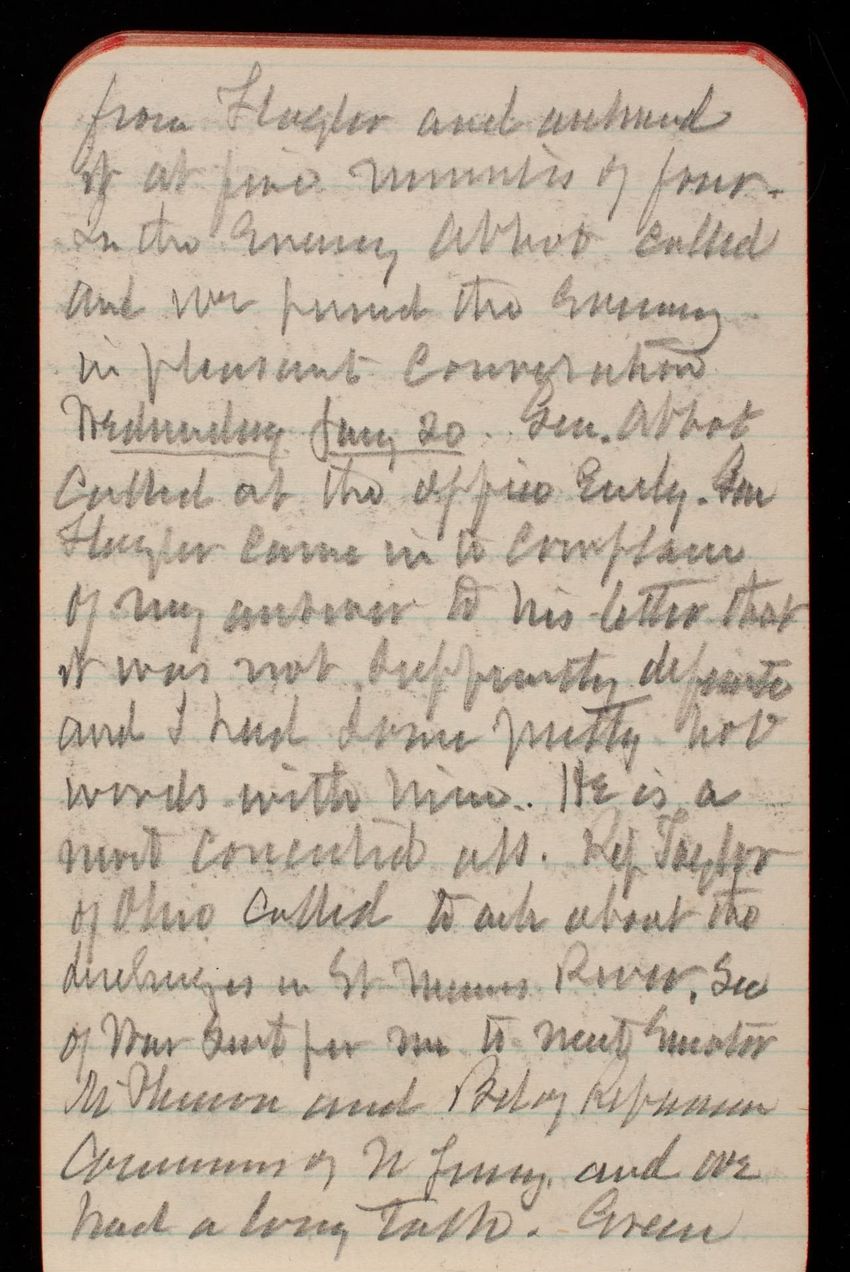 from Flagler and answered
it at five minutes of four.
In the Evening Abbot called
and we passed the Evening
in pleasant Conversation
Wednesday Jany 20. Gen. Abbot
Called at the office Early. Gen
Flagler came in to complain
of my answer to his letter that
it was not sufficiently definite
and I had some pretty hot
words with him. He is a
most conceited ass. Rep Taylor
of Ohio called to ask about the
discharges in St Marys River. Sec
of War sent for me to meet Senator
McPherson and Riparian
Commrs of N Jersey. and we
had a long talk. Green